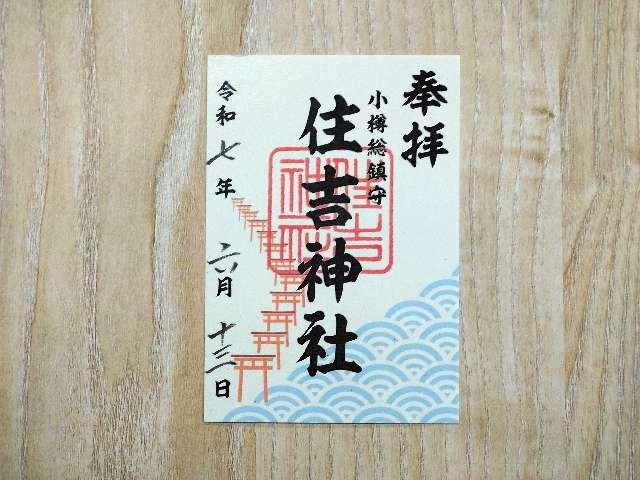 奉拝
小樽総鎮守
住吉神社
令和七年六月十三日
住吉
神社